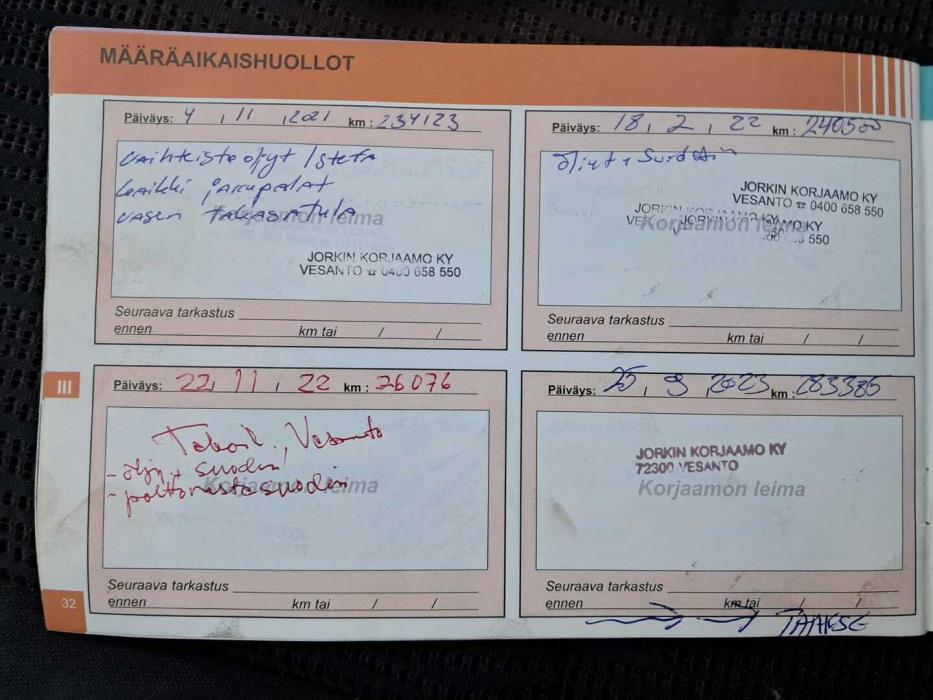 MÄÄRÄAIKAISHUOLLOT
Päiväys: 4 , 11 , 2021 km : 234123
vaihteistoöljyt /
kaikki jarrupalat
vasen
Korjaamon leima
JORKIN KORJAAMO KY
VESANTO ☎ 0400 658 550
Seuraava tarkastus
ennen km tai / /
Päiväys: 18 , 2 , 22 km : 240500
öljyt + suodatin
JORKIN KORJAAMO KY
VESANTO ☎ 0400 658 550
JORKIN KORJAAMO KY
Korjaamon leima
550
Seuraava tarkastus
ennen km tai / /
III
Päiväys: 22 , 11 , 22 km : 26076
Vesanto
- öljy + suodin
- polttoainesuodin
Korjaamon leima
Seuraava tarkastus
ennen km tai / /
Päiväys: 25 , 9 , 2023 km : 283385
JORKIN KORJAAMO KY
72300 VESANTO
Korjaamon leima
Seuraava tarkastus
ennen km tai / /
32